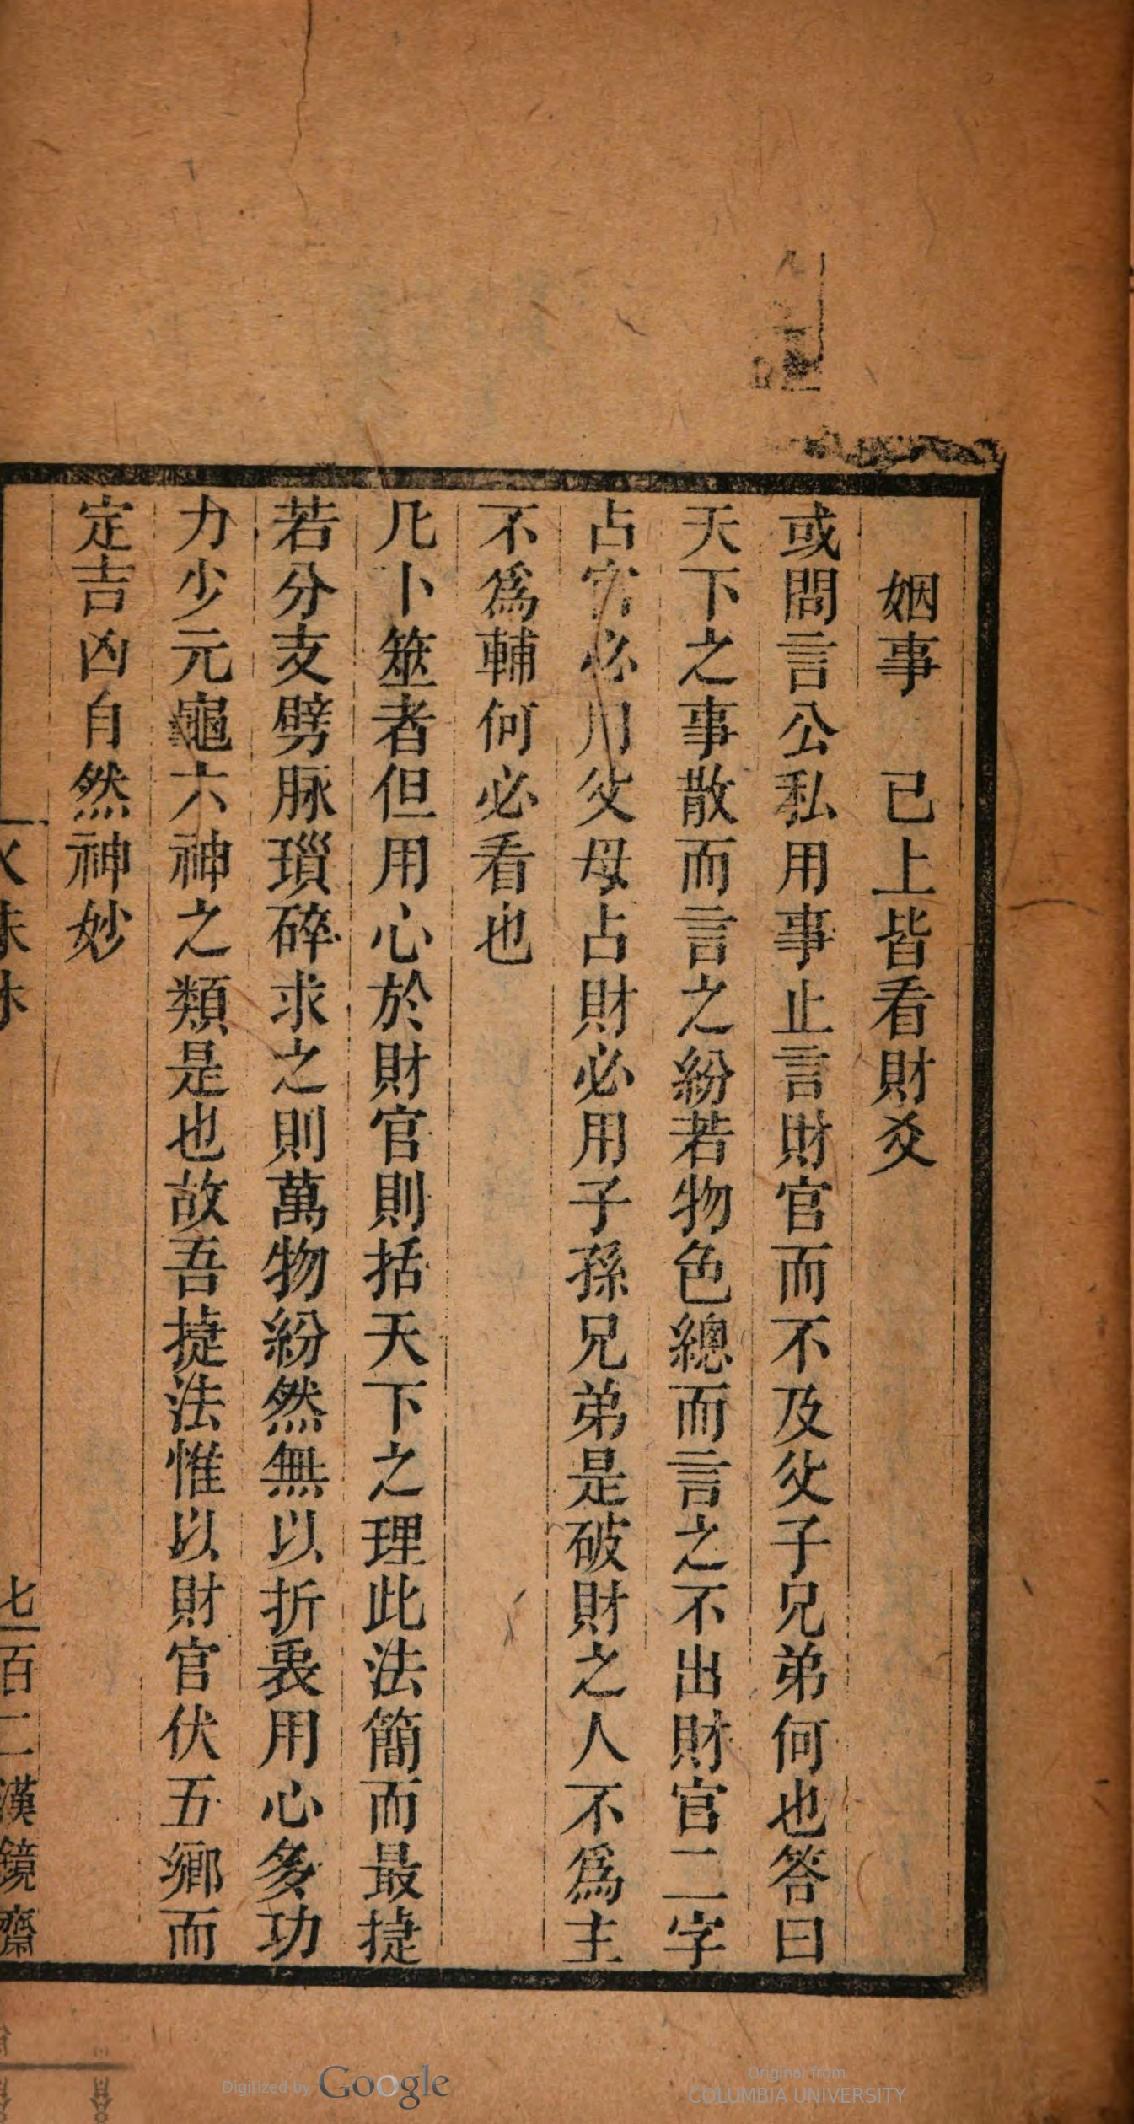 姻事　已上皆看財爻
或問言公私用事止言財官而不及父子兄弟何也答曰
天下之事散而言之紛若物色總而言之不出財官二字
占官必用父母占財必用子孫兄弟是破財之人不為主
不為輔何必看也
凡卜筮者但用心於財官則括天下之理此法簡而最捷
若分支劈脉瑣碎求之則萬物紛然無以折衷用心多功
力少元龜六神之類是也故吾捷法惟以財官伏五鄉而
定吉凶自然神妙
火珠林
七百二漢鏡齋
Digitized by Google
Original from
COLUMBIA UNIVERSITY